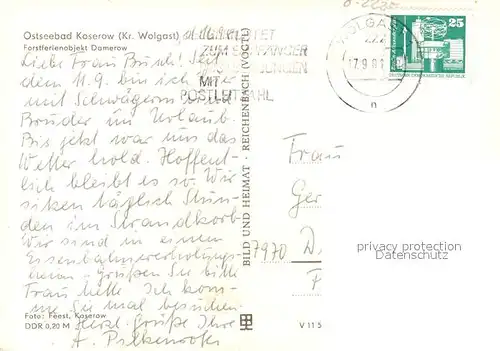 Ostseebad Koserow (Kr. Wolgast)
Forstferienobjekt Damerow
Liebe Frau Busch! Seit
dem 11.9. bin ich hier
mit Schwägerin und
Bruder im Urlaub.
Bis jetzt war uns das
Wetter hold. Hoffent-
lich bleibt es so. Wir
sitzen täglich Stun-
den im Strandkorb
Wir sind in einem
Eisenbahnerholungs-
heim. Grüßen Sie bitte
Frau Ich kom-
me Sie mal besuchen
Herzl. Grüße Ihre
A.
Foto: Feest, Koserow
DDR 0,20 M
BILD UND HEIMAT · REICHENBACH (VOGTL)
V 11 5
ZUM EMPFÄNGER
MIT
POSTLEITZAHL
WOLGAST
222
17.9.81
n
25
DEUTSCHE DEMOKRATISCHE REPUBLIK
Frau
Ger
7970 D
F
privacy protection
Datenschutz